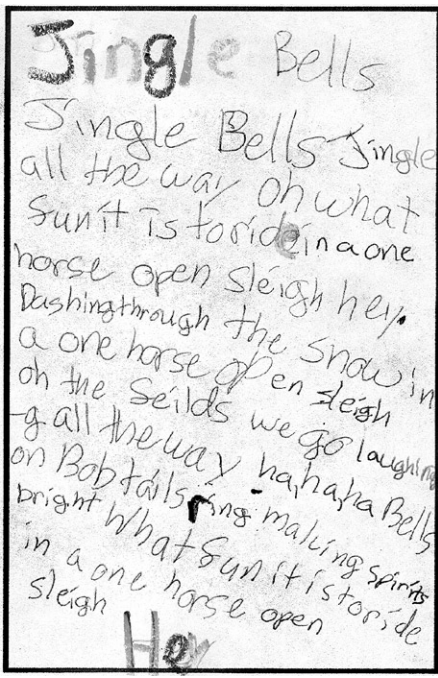 Jingle Bells
Jingle Bells Jingle
all the way oh what
Sun it is to ride in a one
horse open sleigh hey.
Dashing through the snow in
a one horse open sleigh
oh the Seilds we go laughing
-g all the way ha,ha,ha Bells
on Bobtails ring making spirits
bright What Sun it is to ride
in a one horse open
sleigh
Hey